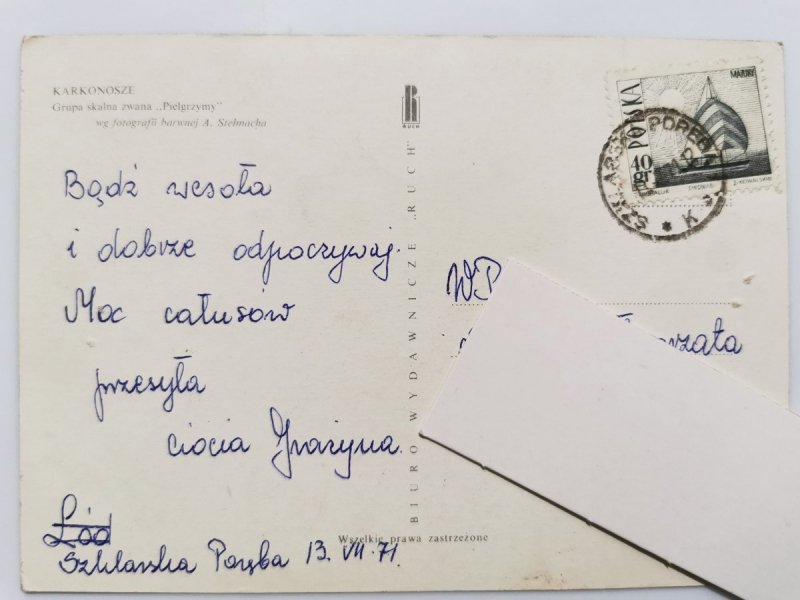 KARKONOSZE
Grupa skalna zwana „Pielgrzymy"
wg fotografii barwnej A. Stelmacha
Bądź wesoła
i dobrze odpoczywaj.
Moc całusów
przesyła
ciocia Grażyna.
Łód
Szklarska Poręba 13.VII.71.
Wszelkie prawa zastrzeżone
BIURO WYDAWNICZE „RUCH"
RUCH
MAZURY
POLSKA
40 GR
SZKLARSKA PORĘBA
K
WP